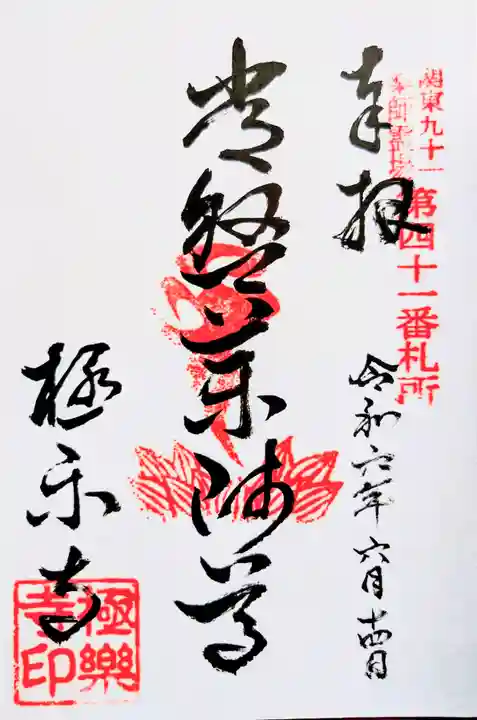 関東九十一
薬師霊場
第四十一番札所
奉拝
令和六年六月十四日
常盤薬師尊
極楽寺
極樂寺印